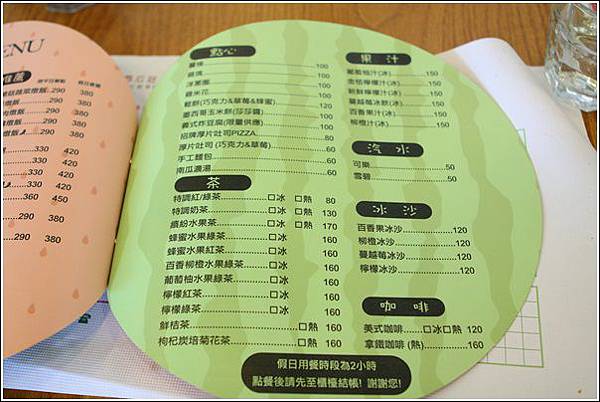 ENU
燉飯
290 380
290 380
290 380
290 380
330 420
330 420
360 450
330 420
360 450
290 380
290 380
點心
薯條
雞塊
洋蔥圈
雞米花
鬆餅(巧克力&草莓&蜂蜜)
墨西哥玉米餅(莎莎醬)
義式炸豆腐(限量供應)
招牌厚片吐司PIZZA
厚片吐司 (巧克力&草莓)
手工麵包
南瓜濃湯
茶
特調紅/綠茶 □冰 □熱 80
特調奶茶 □冰 □熱 130
繽紛水果茶 □冰 □熱 170
蜂蜜水果綠茶 □冰 160
蜂蜜水果紅茶 □冰 160
百香柳橙水果綠茶 □冰 160
葡萄柚水果綠茶 □冰 160
檸檬紅茶 □冰 160
檸檬綠茶 □冰 160
鮮桔茶 □熱 160
枸杞炭培菊花茶 □熱 160
果汁
葡萄柚汁(冰) 150
金桔檸檬汁(冰) 150
新鮮檸檬汁(冰) 150
蔓越莓冰飲(冰) 150
百香果汁(冰) 150
柳橙汁(冰) 150
汽水
可樂 50
雪碧 50
冰沙
百香果冰沙 120
柳橙冰沙 120
蔓越莓冰沙 120
檸檬冰沙 120
咖啡
美式咖啡 □冰□熱 120
拿鐵咖啡 (熱) 160
假日用餐時段為2小時
點餐後請先至櫃檯結帳! 謝謝您!